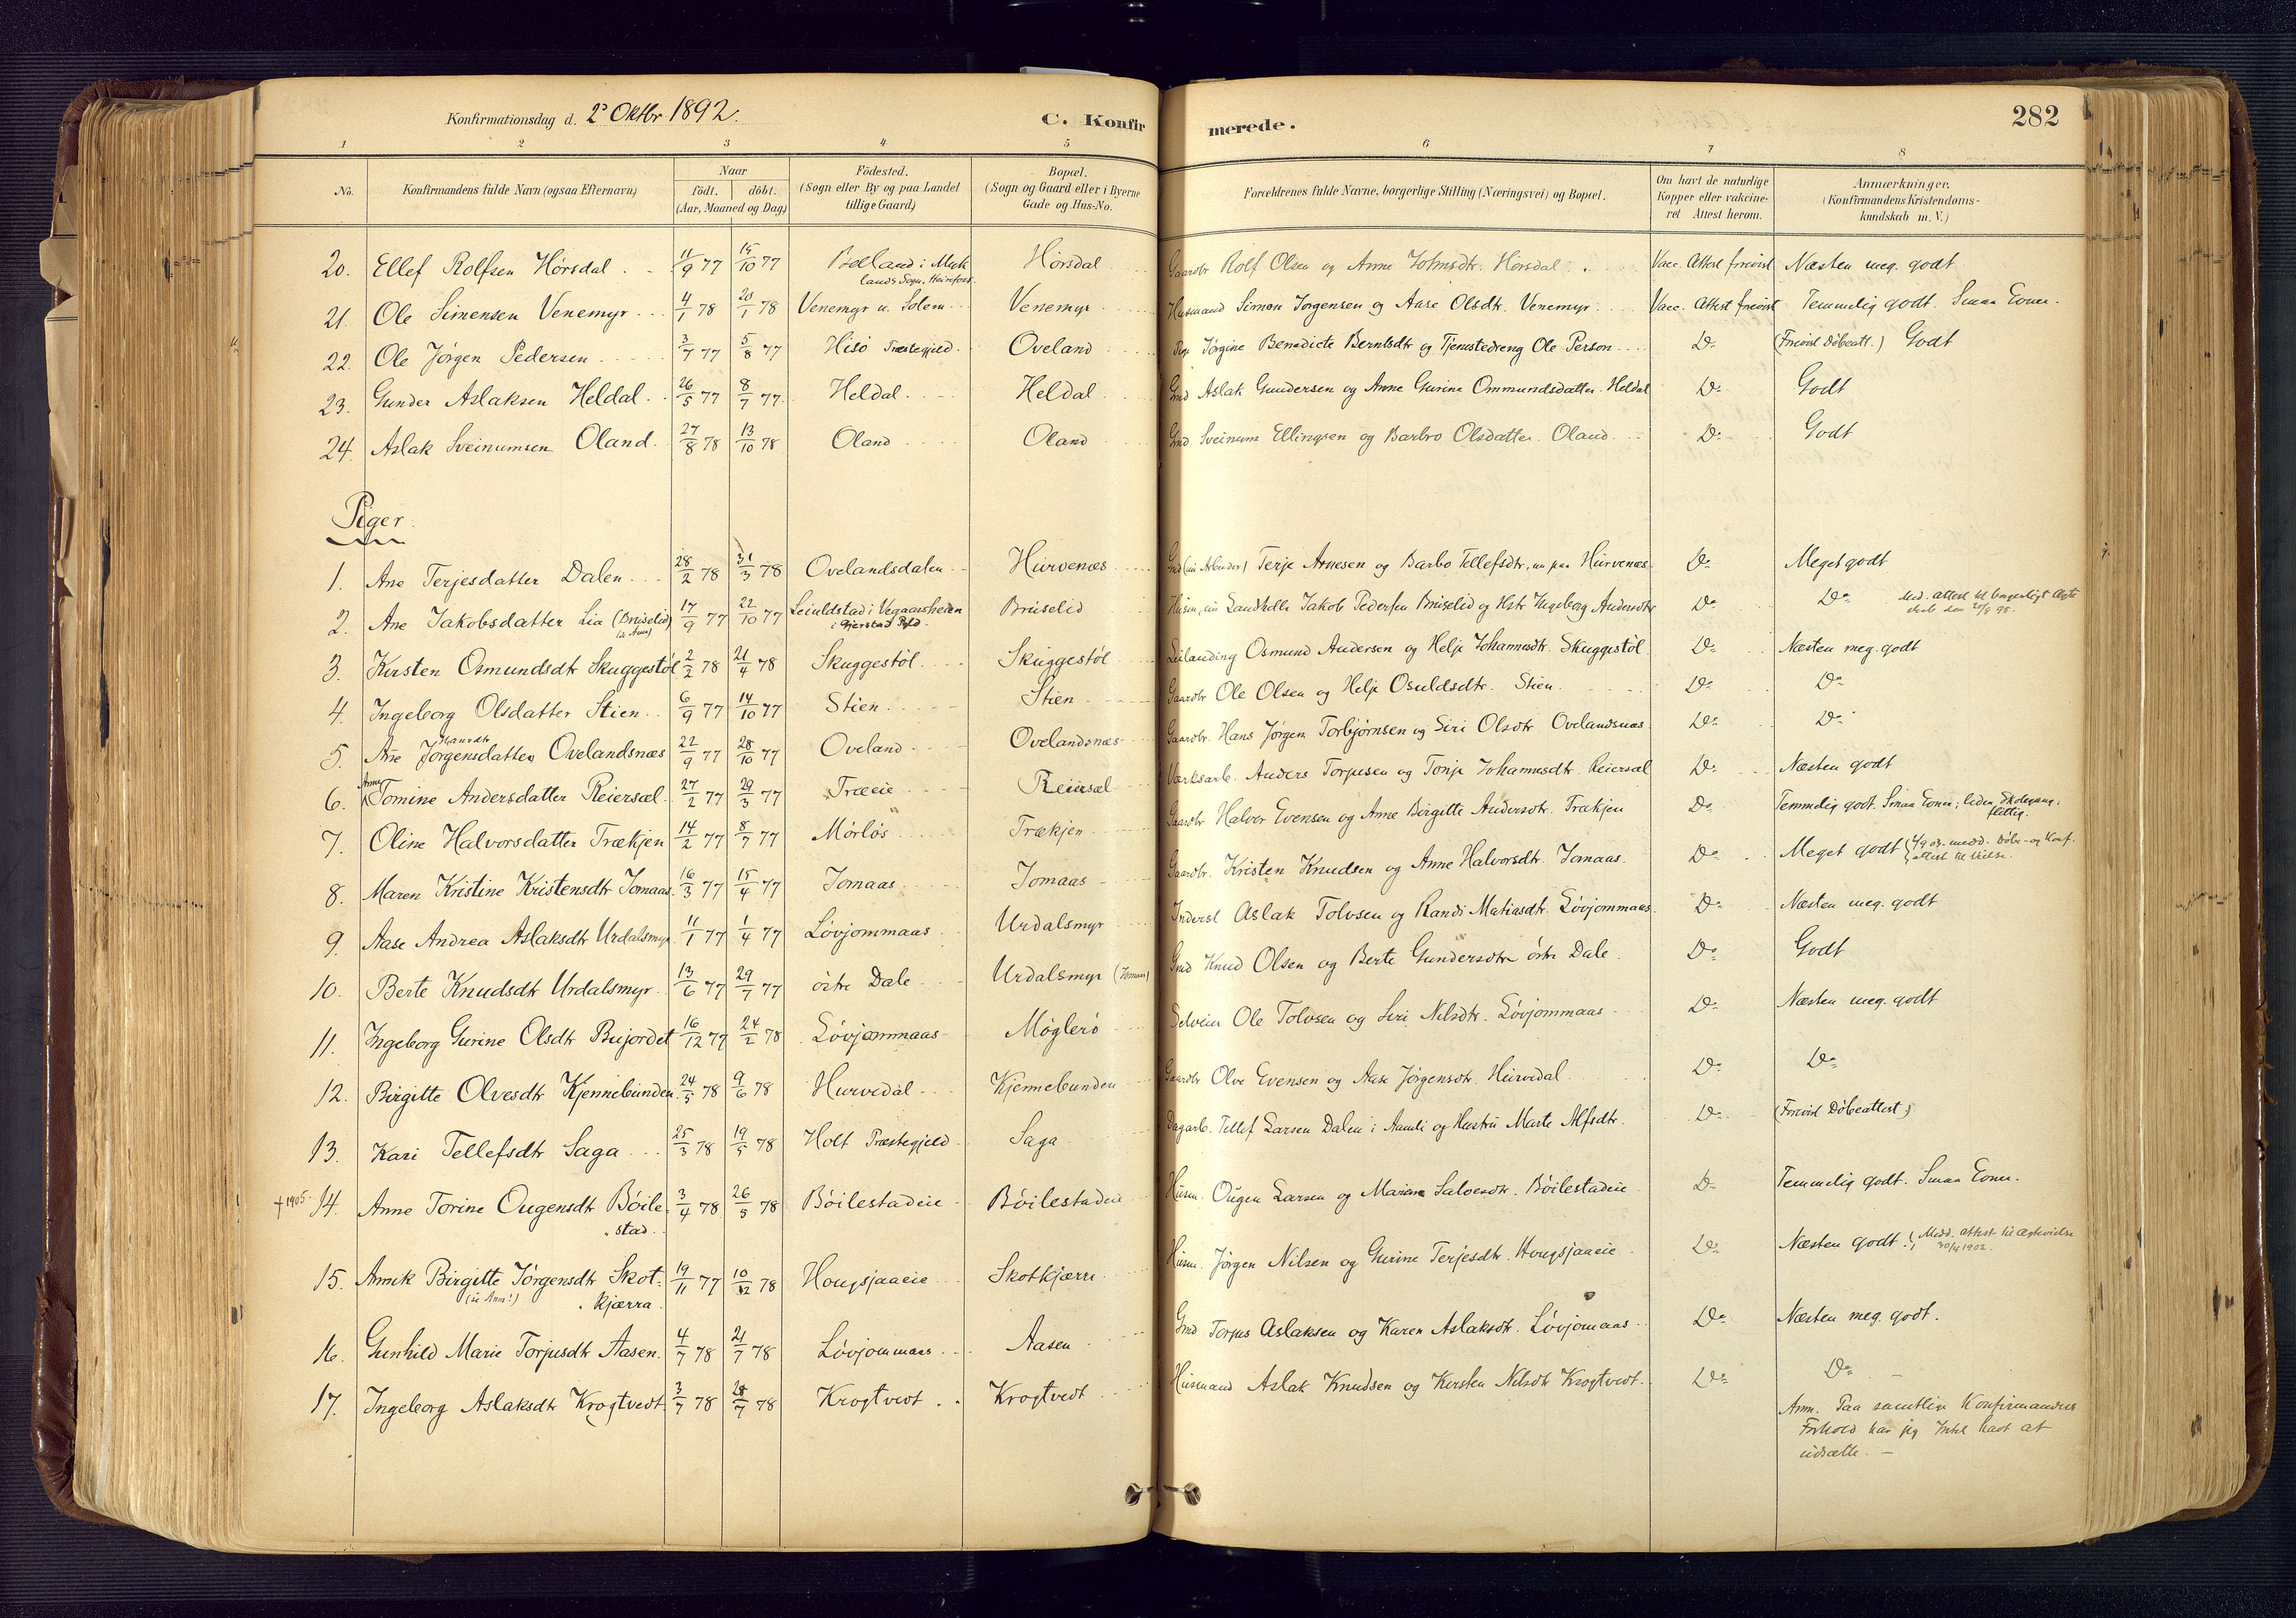 Konfirmationsdag d. 2 Oktbr 1892. C. Konfirmerede. 282
1 2 3 4 5 6 7 8
No. Konfirmandens fulde Navn (ogsaa Efternavn) Naar födt. döbt. (Aar, Maaned og Dag) Födested. (Sogn eller By og paa Landet tillige Gaard) Bopæl. (Sogn og Gaard eller i Byerne Gade og Hus-No. Forældrenes fulde Navne, borgerlige Stilling (Næringsvei) og Bopæl. Om havt de naturlige Kopper eller vakcineret Attest herom. Anmærkninger. (Konfirmandens Kristendomskundskab m. V.)
20. Ellef Rolfsen Hörsdal 11/9 77 15/10 77 Hörsdal Gaardbr Rolf Olsen og Anne Johnsdtr. Hörsdal Vacc. Attest frevist Næsten meg. godt
21. Ole Simensen Venemyr 4/1 78 20/1 78 Venemyr u. Solem Venemyr Husmand Simon Jörgensen og Aase Olsdtr. Venemyr Vacc. Attest frevist Temmelig godt. Smaa Evner.
22. Ole Jörgen Pedersen 3/7 77 5/8 77 Hisö Præstegjeld Oveland Pige Jörgine Benedicte Berntsdtr og Tjenestedreng Ole Person Do (Frevist Döbeatt.) Godt
23. Gunder Aslaksen Heldal 26/5 77 8/7 77 Heldal Heldal Gmd Aslak Gundersen og Anne Gurine Ommundsdatter Heldal Do Godt
24. Aslak Sveinumsen Oland 27/8 78 13/10 78 Oland Oland Gmd Sveinum Ellingsen og Barbro Olsdatter. Oland Do Godt
Piger
1. Ane Terjesdatter Dalen 28/2 78 31/3 78 Ovelandsdalen Hurvenæs Gmd (nu Arbeider) Terje Arnesen og Barbo Tellefsdtr, nu paa Hurvenæs Do Meget godt
2. Ane Jakobsdatter Lia (Bruselid) (se Anm) 17/9 77 22/10 77 Leiuldstad i Vegaarsheien i Gjerstad Pgld. Bruselid Husm, nu Landhdl. Jakob Pedersen Bruselid og Hstr Ingeborg Andersdtr Do Do Med. attest til borgerligt Ægteskab
3. Kirsten Osmundsdtr Skuggestöl 2/2 78 21/4 78 Skuggestöl Skuggestöl Leilænding Osmund Andersen og Helje Johannesdtr. Skuggestöl Do Næsten meg. godt
4. Ingeborg Olsdatter Stien 6/9 77 14/10 77 Stien Stien Gaardbr Ole Olsen og Helje Osuldsdtr. Stien Do Do
5. Ane Jörgensdatter Ovelandsnæs 22/9 77 28/10 77 Oveland Ovelandsnæs Gaardbr. Hans Jörgen Torbjörnsen og Siri Olsdtr. Ovelandsnæs Do Do
6. Anne Tomine Andersdatter Reiersæl 27/2 77 29/3 77 Træeie Reiersæl Værksarb. Anders Torjusen og Tonje Johannesdtr. Reiersæl Do Næsten godt
7. Oline Halvorsdatter Trækjen 14/2 77 8/7 77 Mörlös Trækjen Gaardbr Halvor Evensen og Anne Birgitte Andersdtr. Trækjen Do Temmelig godt. Smaa Evner; liden Skolegang; flittig.
8. Maren Kristine Kristensdtr Jomaas 16/3 77 15/4 77 Jomaas Jomaas Gaardbr. Kristen Knudsen og Anne Halvorsdtr. Jomaas. Do Meget godt medd. Döbe- og Konf. attest til Vielse.
9. Aase Andrea Aslaksdtr Urdalsmyr 11/1 77 1/4 77 Lövjommaas Urdalsmyr Inderst Aslak Tolvsen og Randi Matiasdtr. Lövjommaas Do Næsten meg. godt
10. Berte Knudsdtr Urdalsmyr 13/6 77 29/7 77 östre Dale Urdalsmyr (Jomaas) Gmd Knud Olsen og Berte Gundersdtr östre Dale. Do Godt
11. Ingeborg Gurine Olsdtr Bujordet 16/12 77 24/2 78 Lövjommaas Möglerö Selveier Ole Tolvsen og Siri Nilsdtr. Lövjommaas Do Næsten meg. godt
12. Birgitte Olvesdtr Kjennebunden 24/5 78 9/6 78 Hurvedal Kjennebunden Gaardbr Olve Evensen og Aase Jörgensdtr. Hurvedal Do Do
13. Kari Tellefsdtr Saga 25/3 78 19/5 78 Holt Præstegjeld Saga Dagarb. Tellef Larsen Dalen i Aamli og Hustru Marte Alfsdtr. Do (Frevist Döbeattest)
†1905 14. Anne Torine Ougensdtr Böilestad 3/4 78 26/5 78 Böilestadeie Böilestadeie Husm. Ougen Larsen og Mariane Salvesdtr. Böilestadeie Do Temmelig godt. Smaa Evner.
15. Annik Birgitte Jörgensdtr Skotkjærra (se Anm!) 19/11 77 10/2 78 Hougsjaaeie Skotkjærr Husm. Jörgen Nilsen og Gurine Terjesdtr. Hougsjaaeie Do Næsten godt. Medd. attest til ægtevielse 1902.
16. Gunhild Marie Torjusdtr Aasen 4/7 78 21/7 78 Lövjommaas Aasen Gmd Torjus Aslaksen og Karen Aslaksdtr. Lövjomaas Do Næsten meg. godt.
17. Ingeborg Aslaksdtr Krogtvedt 3/7 78 28/7 78 Krogtvedt Krogtvedt Husmand Aslak Knudsen og Kirsten Nilsdtr Krogtvedt Do Do
Anm. Paa samtlige Konfirmanders
Forhold har jeg Intet havt at
udsætte. —